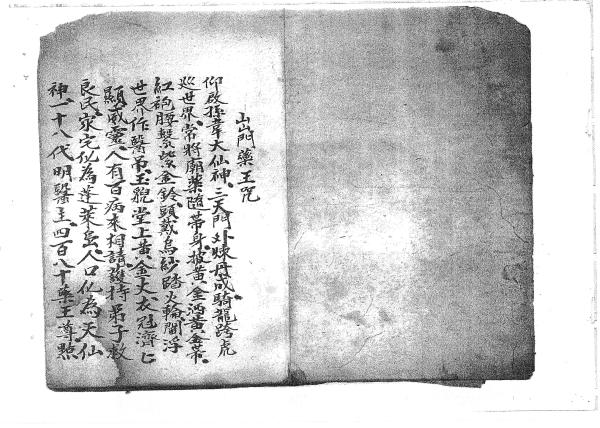 山門藥王咒
仰啟孫韋大仙神、三天門外煉丹成騎龍跨虎
巡世界、常將廟藥隨帶身、披黃金河黃金帶、
紅袍腰繫紫金鈴、頭戴烏紗踏火輪、閻浮
世界作醫吊、玉堂上黃金大衣冠濟亡
顯威靈、人有百病來相請護持弟子救
良民家宅化為蓬萊島、人口化為天仙
神、一十八代明醫主、四百八十藥王尊點